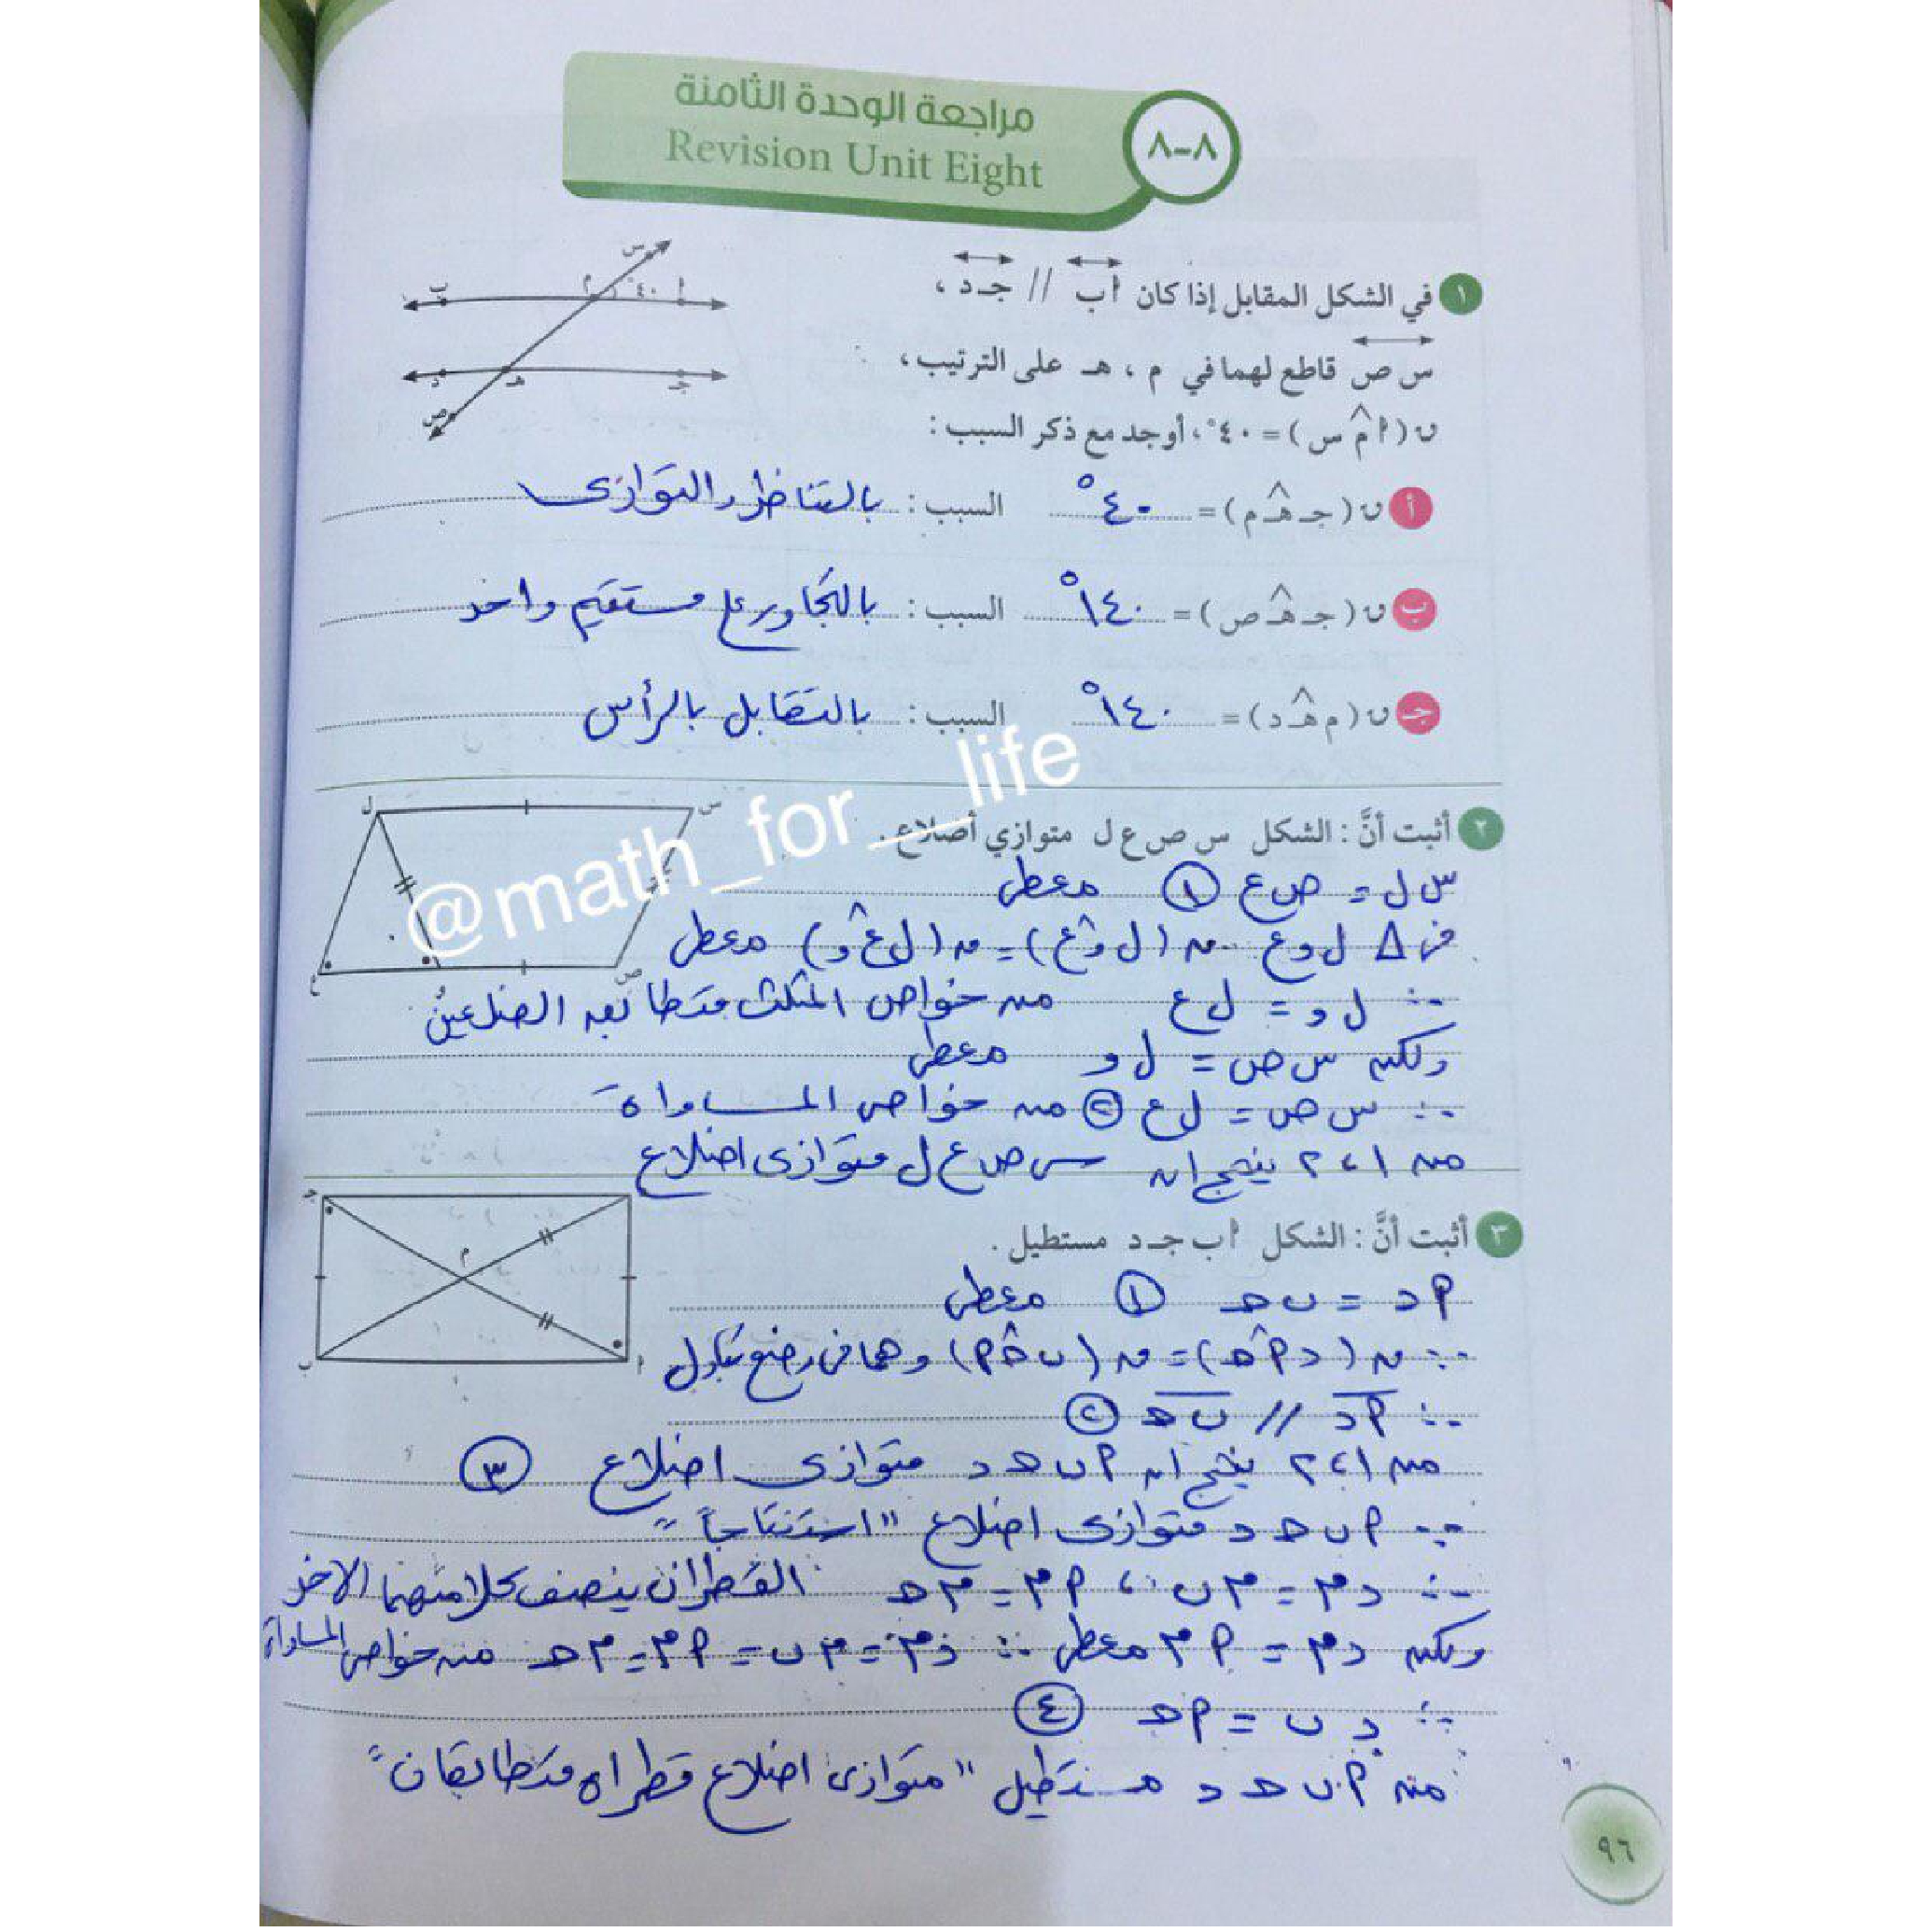 مراجعة الوحدة الثامنة
Revision Unit Eight
٨-٨
١ في الشكل المقابل إذا كان أب // جـ د ،
س ص قاطع لهما في م ، هـ على الترتيب ،
ن ( أ م س ) = ٤٠° ، أوجد مع ذكر السبب :
س
م ٤٠° أ ب
د هـ جـ
ص
أ ن ( جـ هـ م ) = ٤٠° السبب : بالتناظر والتوازى
ب ن ( جـ هـ ص ) = ١٤٠° السبب : بالتجاور على مستقيم واحد
جـ ن ( م هـ د ) = ١٤٠° السبب : بالتقابل بالرأس
@math_for__life
٢ أثبت أنَّ : الشكل س ص ع ل متوازي أضلاع .
ل س
ع و ص
س ل = ص ع ① معطى
فى Δ ل و ع ن ( ل و ع ) = ن ( ل ع و ) معطى
∴ ل و = ل ع من خواص المثلث متطابق الضلعين
ولكن س ص = ل و معطى
∴ س ص = ل ع ② من خواص المساواة
من ١ ، ٢ ينتج ان س ص ع ل متوازى اضلاع
٣ أثبت أنَّ : الشكل أ ب جـ د مستطيل .
جـ
م
ب أ
أ د = ب حـ ① معطى
∵ ن ( د أ حـ ) = ن ( ب حـ أ ) وهما فى وضع تبادل
∴ أ د // ب حـ ②
من ١ ، ٢ ينتج ان أ ب حـ د متوازى اضلاع ③
∵ أ ب حـ د متوازى اضلاع " استنتاجاً "
∴ د م = م ب ، أ م = م حـ القطران ينصف كلا منهما الاخر
ولكن د م = أ م معطى ∴ د م = م ب = أ م = م حـ من خواص المساواة
∴ د ب = أ حـ ④
من أ ب حـ د مستطيل " متوازى اضلاع قطراه متطابقان "
٩٦